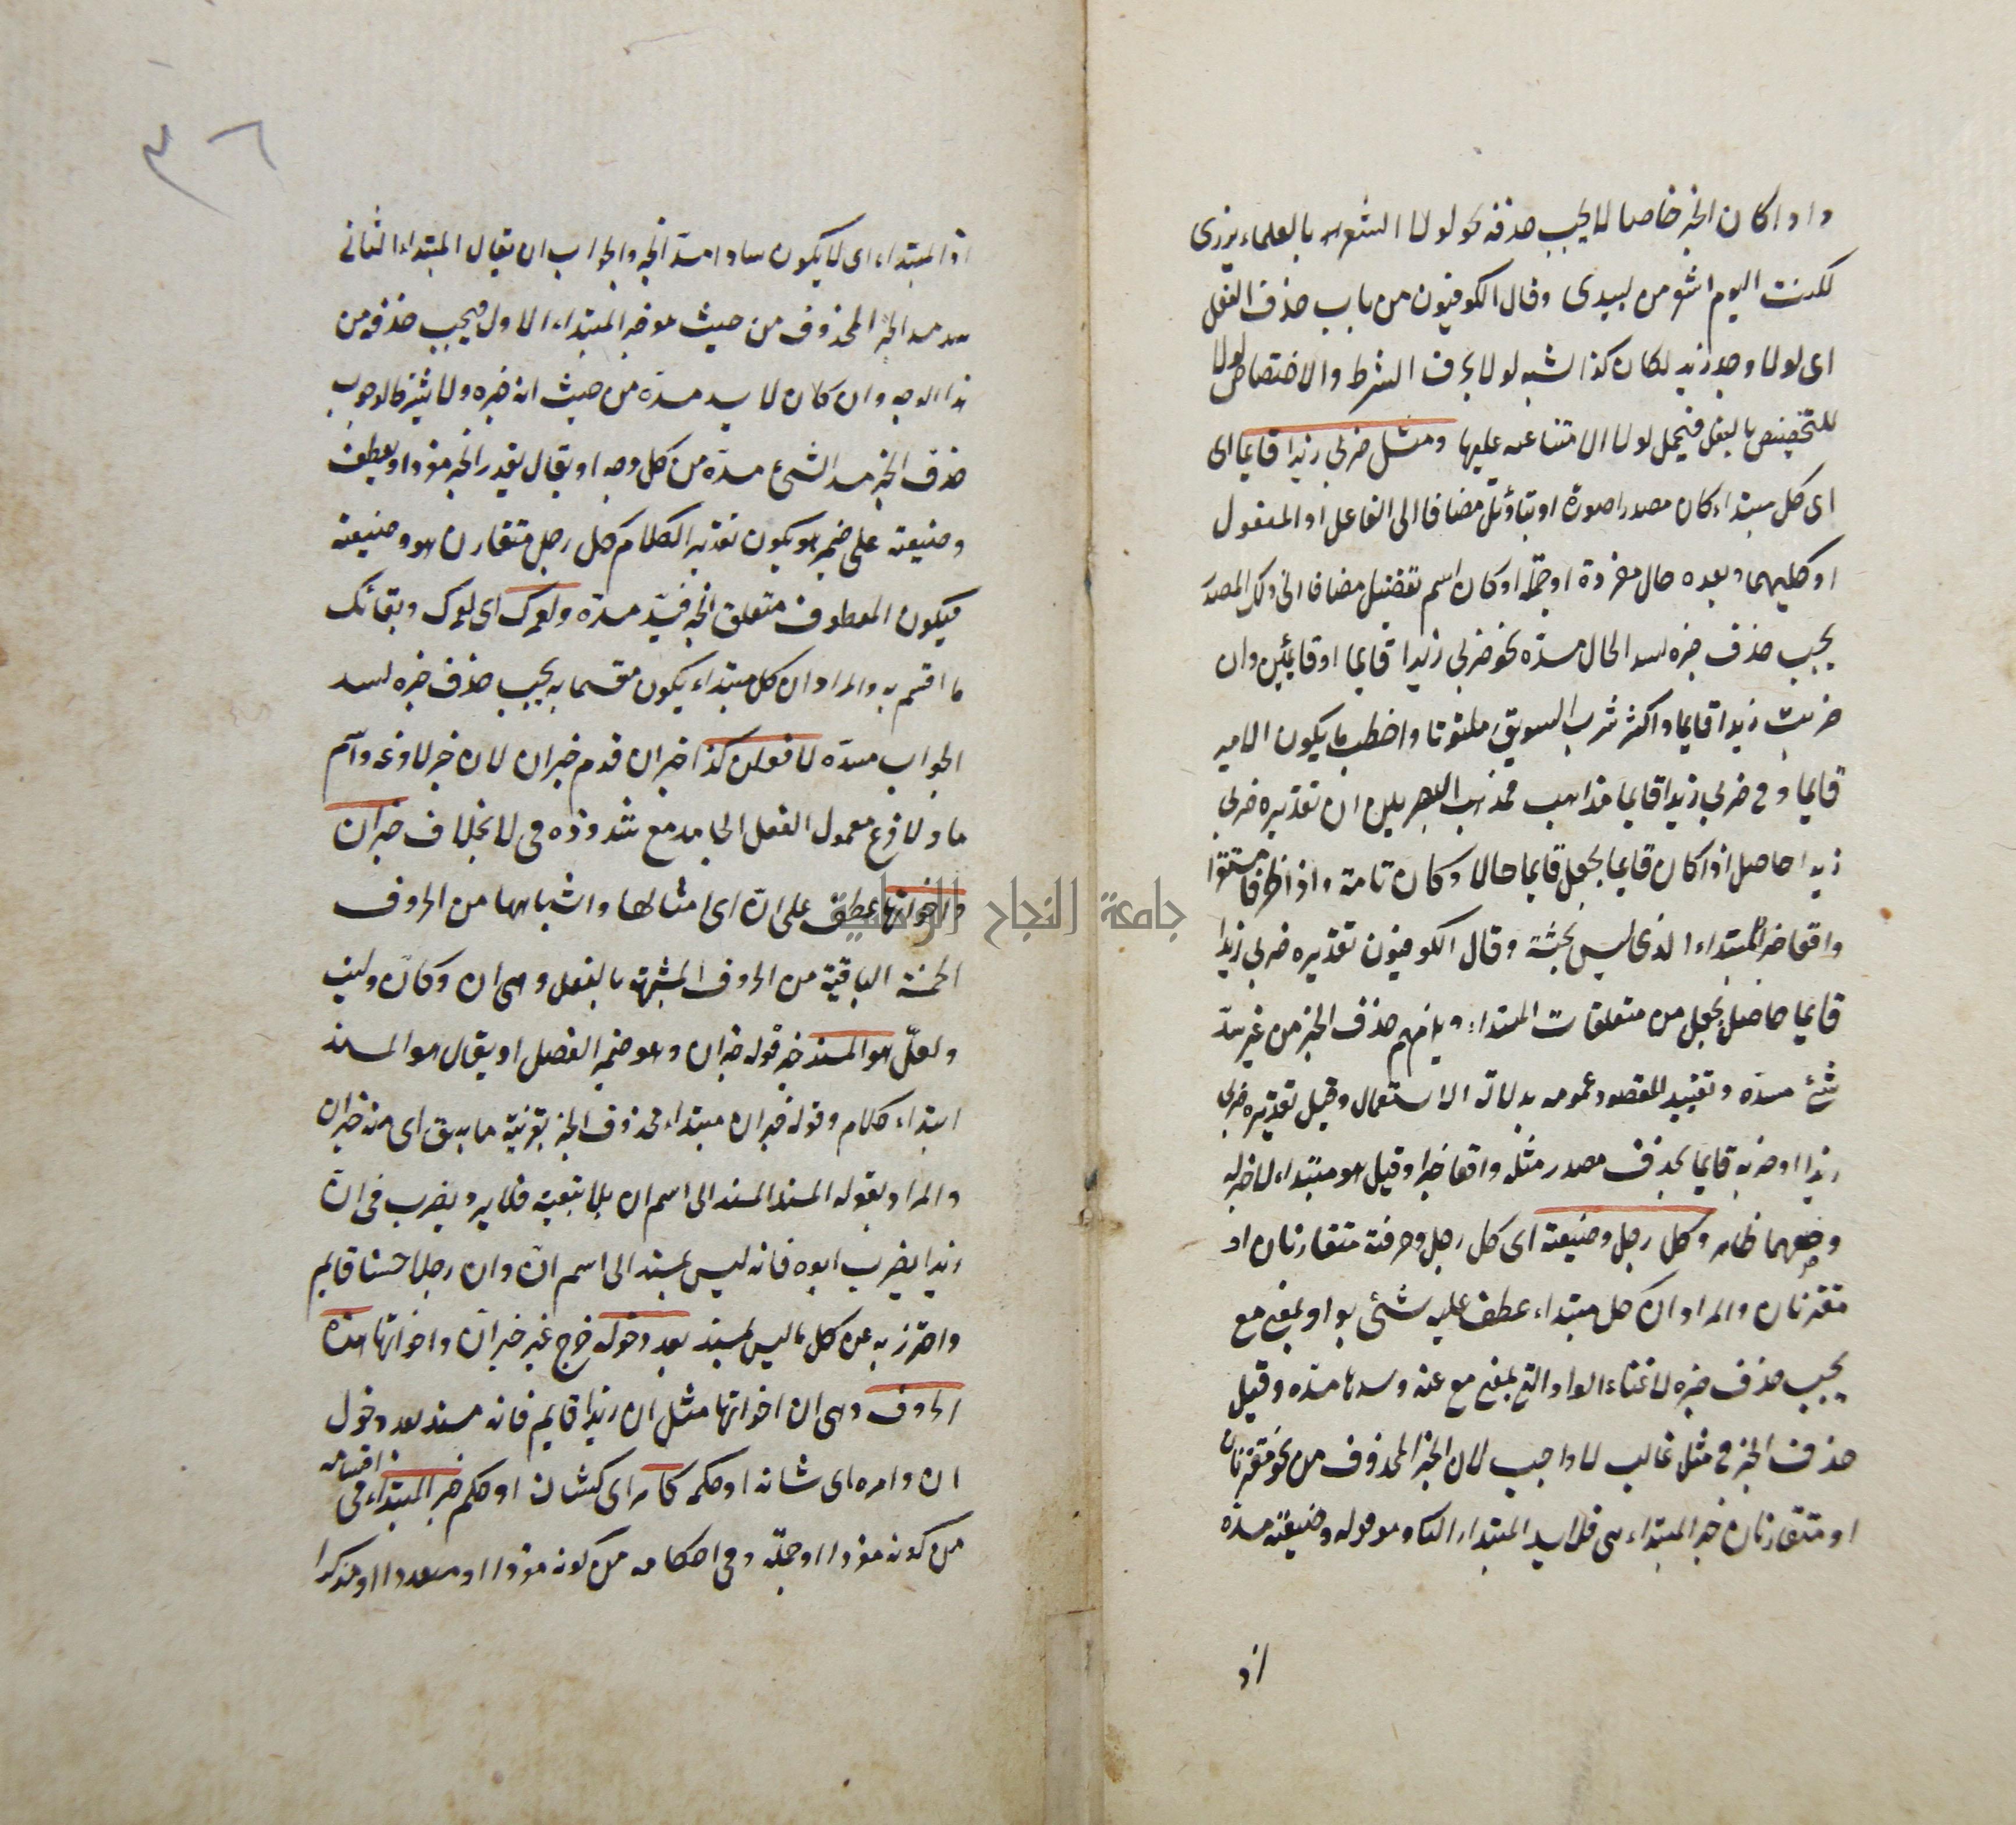 واذا كان الخبر خاصا لا يجب حذفه نحو لولا الشعر بالعلماء يزرى
لكنت اليوم اشعر من لبيدى وقال الكوفيون من باب حذف الفعل
اى لولا وجد زيد لكان كذا لشبه لولا بحرف الشرط والاختصاص لولا
للتحضيض بالفعل فيحمل لولا الامتناعية عليها ومثل ضربى زيدا قايما اى
اى كل مبتداء كان مصدرا صورة او بتأويل مضافا الى الفاعل او المفعول
او كليهما وبعده حال مفردة او جملة او كان اسم تفضيل مضافا الى ذلك المصدر
يجب حذف خبره لسد الحال مسدّه نحو ضربى زيدا قايما او قايمين وان
ضربت زيدا قايما واكثر شرب السويق ملتوتا واخطب ما يكون الامير
قايما وفى ضربى زيدا قايما مذاهب فمذهب البصريين ان تقديره ضربى
زيدا حاصل اذا كان قايما بجعل قايما حالا وكان تامة واذا ظرفا مستقرا
واقعا خبر المبتداء الذى ليس بجثة وقال الكوفيون تقديره ضربى زيدا
قايما حاصل بجعل من متعلقات المبتداء ويلزمهم حذف الخبر من غير سد
شئ مسدّه وتقييد المقصود عمومه بدلالة الاستعمال وقيل تقديره ضربى
زيدا اضربه قايما بحذف مصدر مثله واقعا خبرا وقيل هو مبتداء لا خبر له
وضعفهما ظاهر وكل رجل وضيعته اى كل رجل وحرفته متقارنان او
مقترنان والمراد ان كل مبتداء عطف عليه شئ بواو بمعنى مع
يجب حذف خبره لاغناء الواو التى بمعنى مع عنه وسدها مسدّه وقيل
حذف الخبر فى مثل غالب لا واجب لان الخبر المحذوف من نحو مقترنان
او متقارنان خبر المبتداء فلا يسد المبتداء وهو قوله وضيعته مسدّه
اذ
٣٦
اذ المبتداء اى لا يكون سادا مسدّ الخبر والجواب ان يقال المبتداء الثانى
سد مسد الخبر المحذوف من حيث هو خبر المبتداء الاول فيجب حذفه من
هذا الوجه وان كان لا يسد مسدّه من حيث انه خبره ولا يشترط لوجوب
حذف الخبر سد الشئ مسدّه من كل وجه او يقال يقدر الخبر مفردا ويعطف
وضيعته على ضميره ويكون تقدير الكلام كل رجل متقارن هو وضيعته
فيكون المعطوف متعلق الخبر فيسدّ مسدّه ولعمرك اى لعمرك وبقائك
ما اقسم به والمراد ان كل مبتداء يكون مقسما به يجب حذف خبره لسد
الجواب مسدّه لافعلن كذا خبر ان قدم خبر ان لان خبر لا فرعه واسم
ما ولا فرع معمول الفعل الجامد مع شذوذه فى لا بخلاف خبر ان
واخواتها عطف على ان اى امثالها واشباهها من الحروف
الخمسة الباقية من الحروف المشبهة بالفعل وهى ان وكان وليت
ولعلّ هو المسند خبر قوله خبر ان وهو ضمير الفصل او يقال هو المسند
ابتداء كلام وقوله خبر ان مبتداء محذوف الخبر بقرينة ما سبق اى منه خبر ان
والمراد بقوله المسند المسند الى اسم ان بلا تبعية فلا يرد يضرب فى ان
زيدا يضرب ابوه فانه ليس بمسند الى اسم ان وان رجلا حسنا قايم
واحترز به عن كل ما ليس بمسند بعد دخول خرج غير خبر ان واخواتها هذه
الحروف وهى ان اخواتها مثل ان زيدا قايم فانه مسند بعد دخول
ان وامره اى شانه او حكمه كامر اى كشان او حكم خبر المبتداء فى اقسامه
من كونه مفردا او جملة وفى احكامه من كونه مفردا او متعددا او مذكرا
جامعة النجاح الوطنية